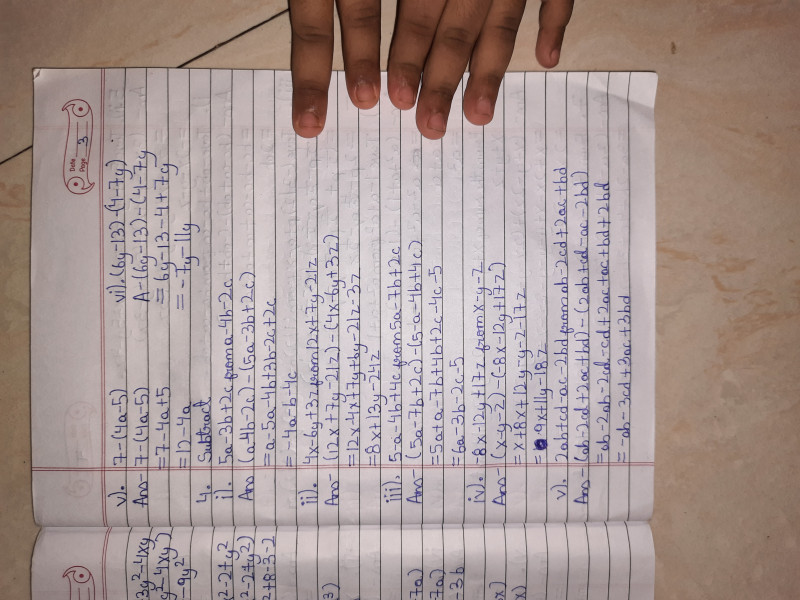 Date
Page 3
v). 7-(4a-5)
Ans- 7-(4a-5)
=7-4a+5
=12-4a
vi). (6y-13)-(4-7y)
A-(6y-13)-(4-7y
= 6y-13-4+7y
= -7y-11y
4. Subtract
i). 5a-3b+2c from a-4b-2c
Ans (a-4b-2c)-(5a-3b+2c)
=a-5a-4b+3b-2c+2c
=-4a-b-4c
ii). 4x-6y+3z from 12x+7y-21z
Ans- (12x+7y-21z)-(4x-6y+3z)
=12x-4x+7y+6y-21z-3z
=8x+13y-24z
iii). 5-a-4b+4c from 5a-7b+2c
Ans- (5a-7b+2c)-(5-a-4b+4c)
=5a+a-7b+4b+2c-4c-5
=6a-3b-2c-5
iv). -8x-12y+17z from x-y-z
Ans- (x-y-z)-(-8x-12y+17z)
=x+8x+12y-y-z-17z
=9x+11y-18z
v). 2ab+cd-ac-2bd from ab-2cd+2ac+bd
Ans- (ab-2cd+2ac+bd)-(2ab+cd-ac-2bd)
=ab-2ab-2cd-cd+2ac+ac+bd+2bd
=-ab-3cd+3ac+3bd
3y²-4xy
²-4xy
-9y²
x²-2+y²
²-2+y²)
²+8-3-2
3)
-7a)
-7a)
-3b
x)
x)